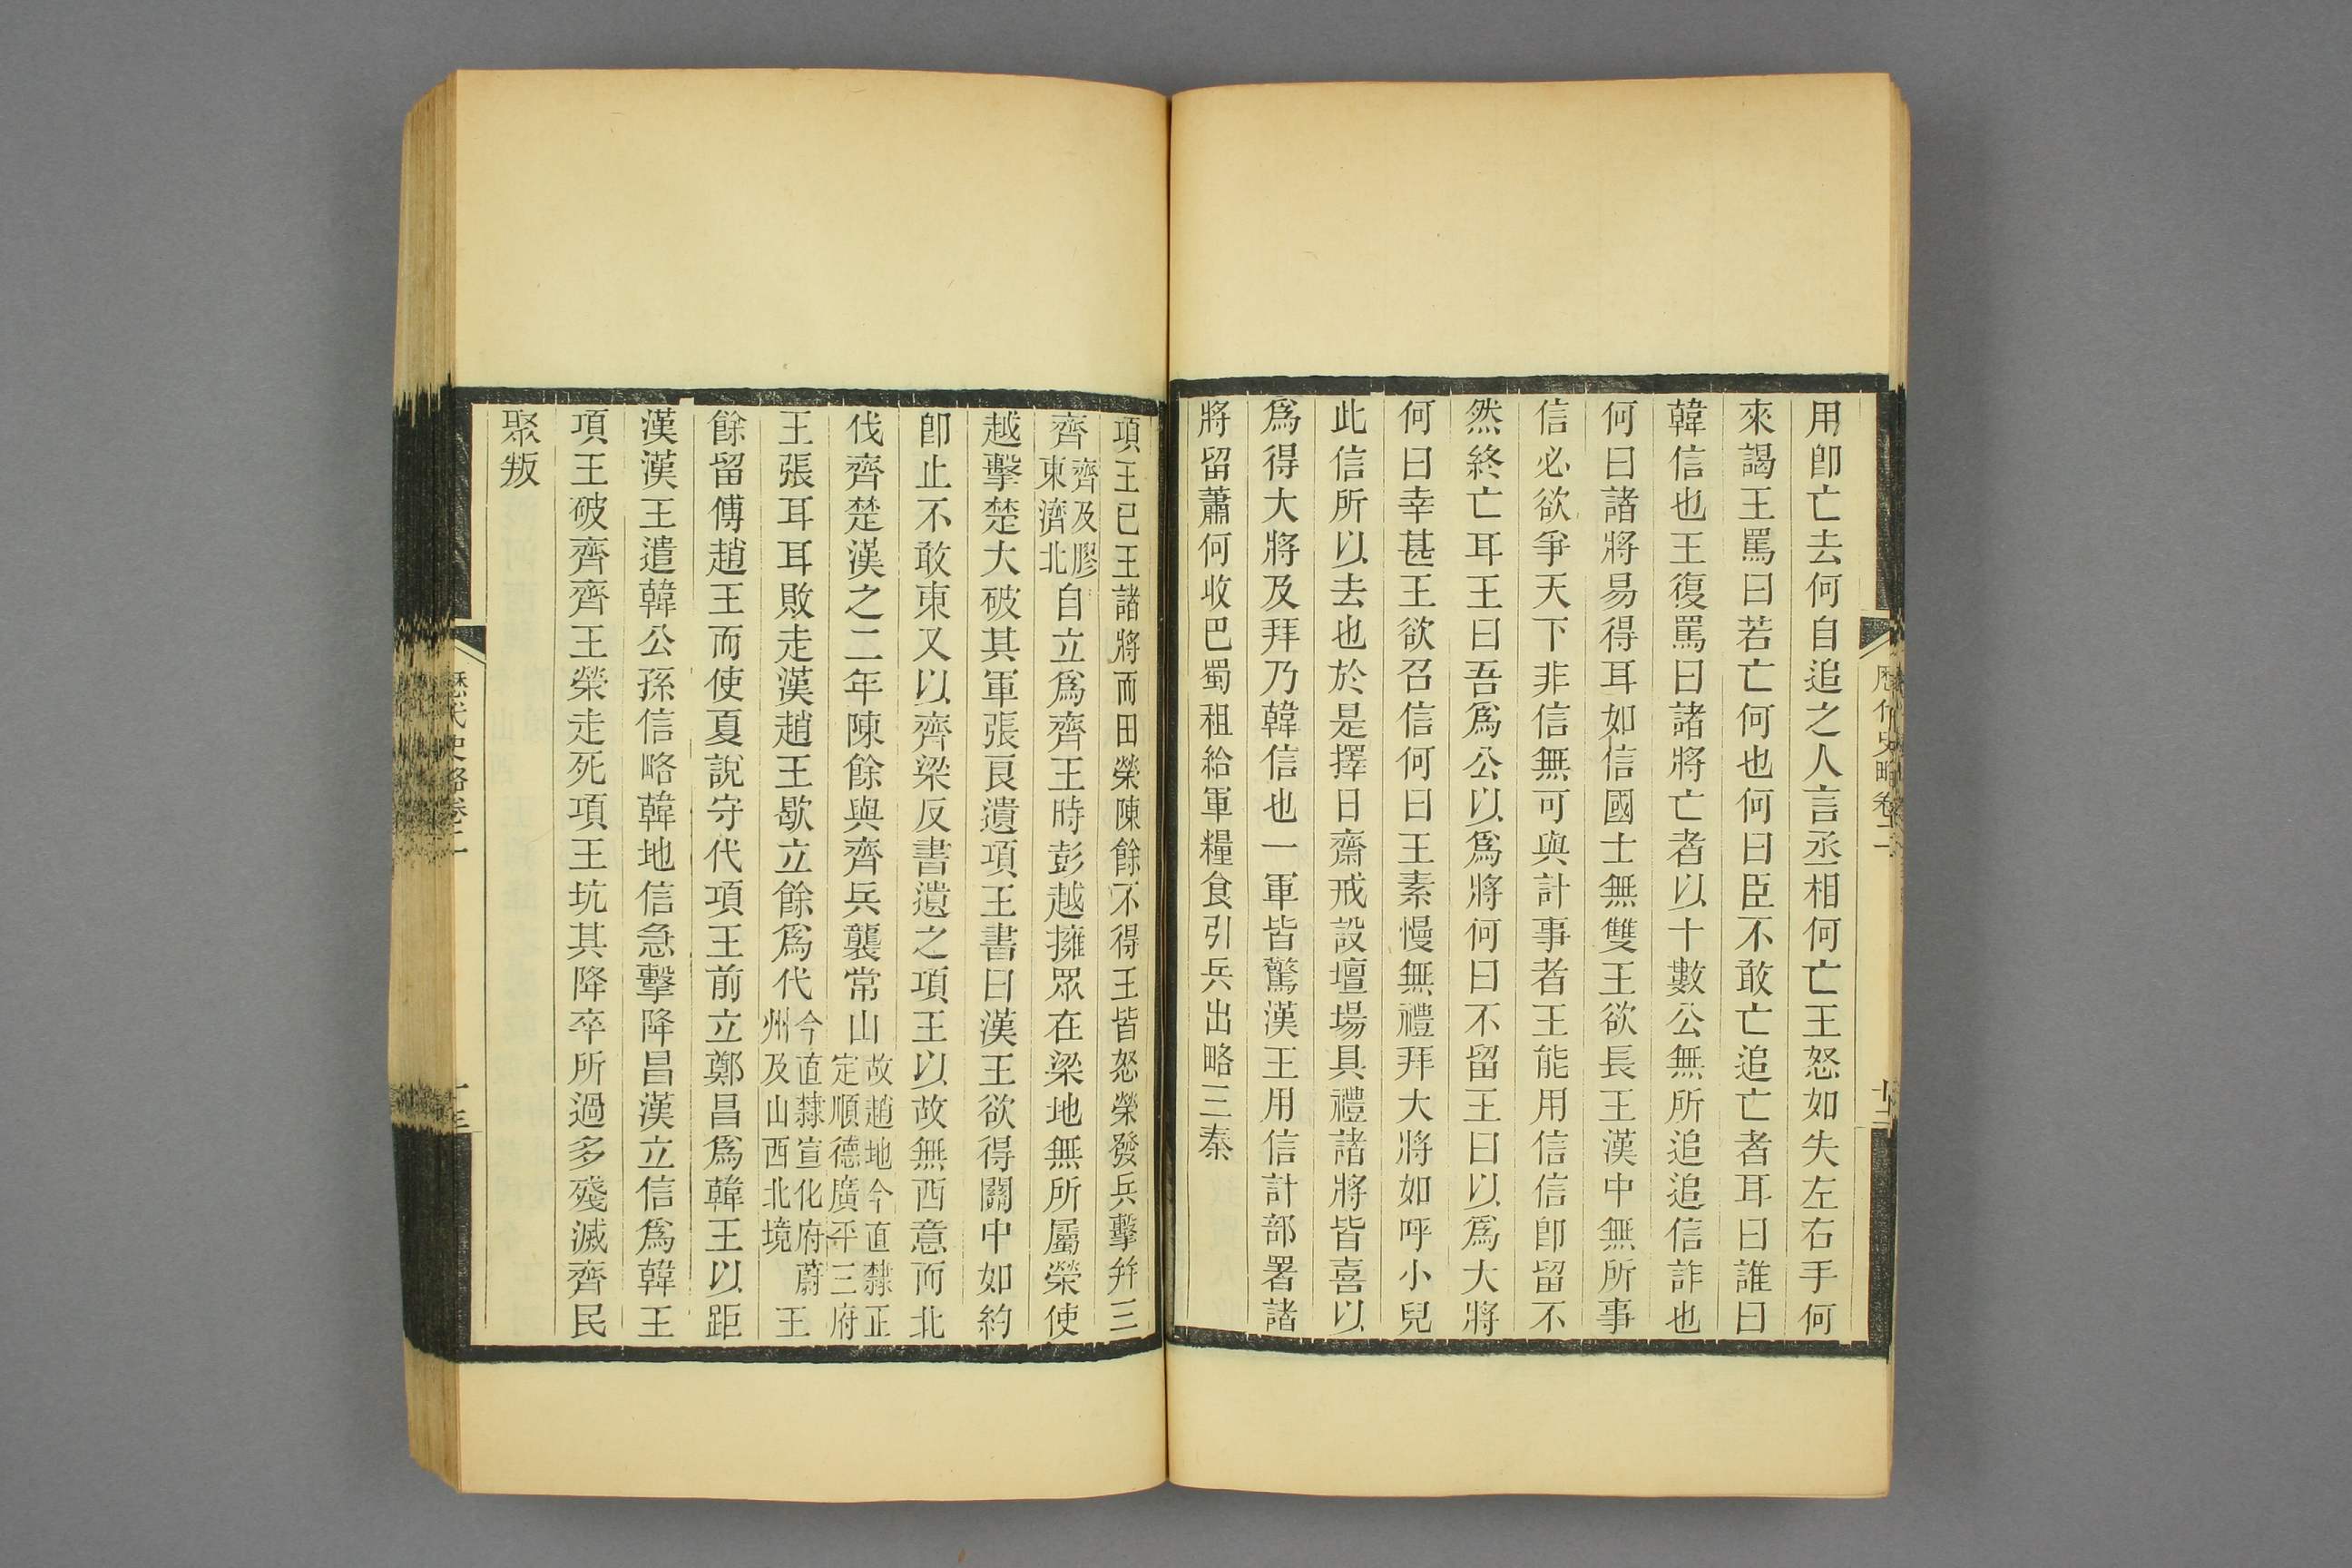 用卽亡去何自追之人言丞相何亡王怒如失左右手何
來謁王罵曰若亡何也何曰臣不敢亡追亡者耳曰誰曰
韓信也王復罵曰諸將亡者以十數公無所追追信詐也
何曰諸將易得耳如信國士無雙王欲長王漢中無所事
信必欲爭天下非信無可與計事者王能用信信卽留不
然終亡耳王曰吾爲公以爲將何曰不留王曰以爲大將
何曰幸甚王欲召信何曰王素慢無禮拜大將如呼小兒
此信所以去也於是擇日齋戒設壇場具禮諸將皆喜以
爲得大將及拜乃韓信也一軍皆驚漢王用信計部署諸
將留蕭何收巴蜀租給軍糧食引兵出略三秦
歷代史略卷二
十二
項王已王諸將而田榮陳餘不得王皆怒榮發兵擊幷三
齊齊及膠東濟北自立爲齊王時彭越擁眾在梁地無所屬榮使
越擊楚大破其軍張良遺項王書曰漢王欲得關中如約
卽止不敢東又以齊梁反書遺之項王以故無西意而北
伐齊楚漢之二年陳餘與齊兵襲常山故趙地今直隸正定順德廣平三府
王張耳耳敗走漢趙王歇立餘爲代今直隸宣化府蔚州及山西北境王
餘留傅趙王而使夏說守代項王前立鄭昌爲韓王以距
漢漢王遣韓公孫信略韓地信急擊降昌漢立信爲韓王
項王破齊齊王榮走死項王坑其降卒所過多殘滅齊民
聚叛
歷代史略卷二
十三